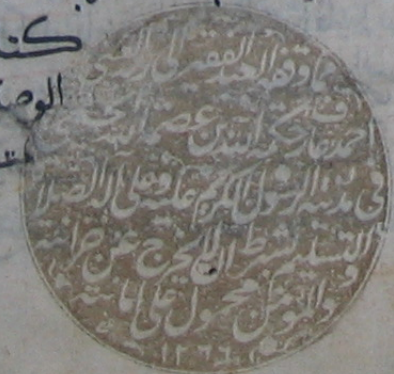 كتب
الوصا
مما وقفه العبد الفقير الى ربه الغني
احمد عارف حكمة الله بن عصمة الله الحسيني
في مدينة الرسول الكريم عليه وعلى آله الصلاة
والتسليم بشرط ان لا يخرج عن خزانته
والمؤمن محمول على امانته
١٢٦٦